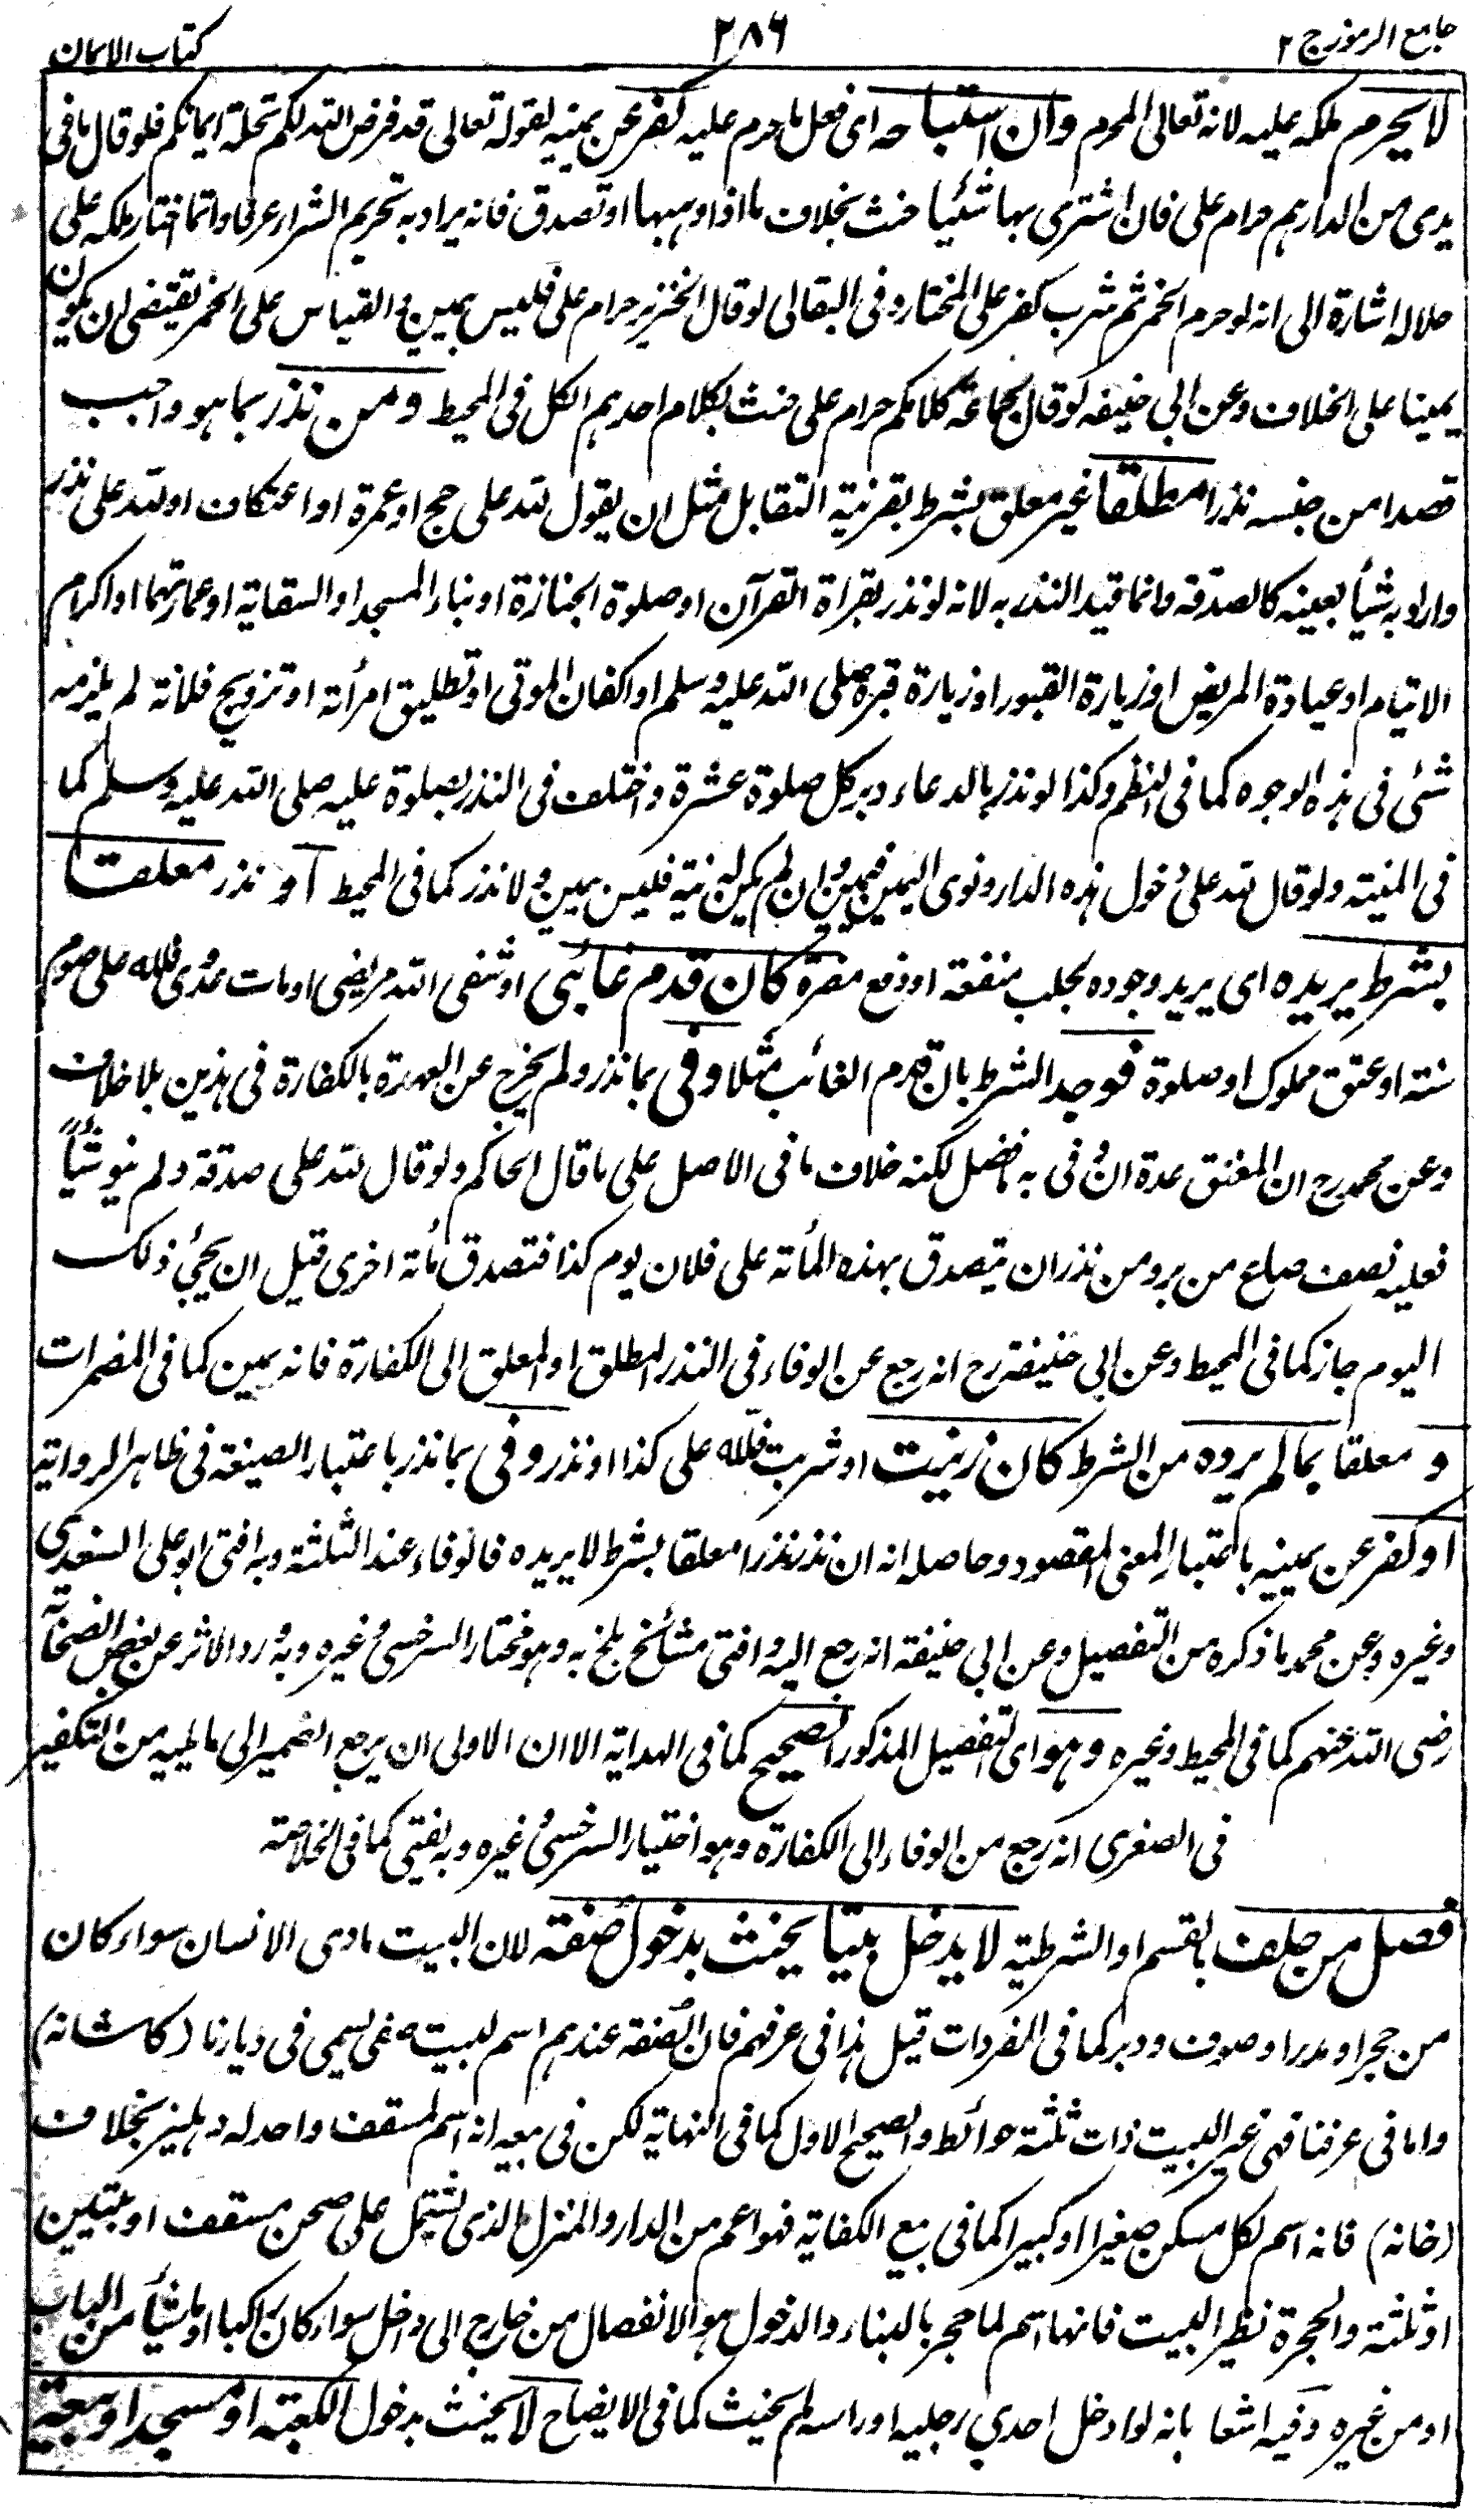 جامع الرموز ج ٢
٢٨٦
كتاب الايمان
لا يحرم ملكه عليه لانه تعالى المحرم وان استباحه اى فعل ما حرم عليه كفر عن يمينه لقوله تعالى قد فرض الله لكم تحلة ايمانكم فلو قال ما فى
يدى من الدراهم حرام على فان اشترى بها شيئا حنث بخلاف ما اذا وهبها او تصدق فانه يراد به تحريم الشراء عرفا وانما اختار ملكه على
حلاله اشارة الى انه لو حرم الخمر ثم شرب كفر على المختار وفى البقالى لو قال الخنزير حرام على فليس بيمين والقياس على الخمر يقتضى ان يكون
يمينا على الخلاف وعن ابى حنيفه لو قال لجماعة كلامكم حرام على حنث بكلام احدهم الكل فى المحيط ومن نذر بما هو واجب
قصدا من جنسه نذرا مطلقا غير معلق بشرط بقرينة التقابل مثل ان يقول لله على حج او عمرة او اعتكاف او لله على نذر
واراد به شيأ بعينه كالصدقة وانما قيد النذر به لانه لو نذر بقراة القرآن او صلوة الجنازة او بناء المسجد او السقاية او عمارتهما او اكرام
الايتام او عيادة المريض او زيارة القبور او زيارة قبره صلى الله عليه وسلم او اكفان الموتى او تطليق امرأته او تزويج فلانة لم يلزمه
شئ فى هذه الوجوه كما فى النظم وكذا لو نذر بالدعاء دبر كل صلوة عشرة واختلف فى النذر بصلوة عليه صلى الله عليه وسلم كما
فى المنية ولو قال لله على دخول هذه الدار ونوى اليمين فيمين وان لم يكن له نية فليس بيمين ولا نذر كما فى المحيط او نذر معلقا
بشرط يريده اى يريد وجوده لجلب منفعة او دفع مضرة كان قدم غائبى او شفى الله مريضى او مات عدوى فلله على صوم
سنة او عتق مملوك او صلوة فوجد الشرط بان قدم الغائب مثلا وفى بما نذر ولم يخرج عن العهدة بالكفارة فى هذين بلا خلاف
وعن محمد رح ان المعتق عدة ان وفى به افضل لكنه خلاف ما فى الاصل على ما قال الحاكم ولو قال لله على صدقة ولم ينو شيأ
فعليه نصف صاع من بر ومن نذر ان يتصدق بهذه المأته على فلان يوم كذا فتصدق مأته اخرى قبل ان يجئ ذلك
اليوم جاز كما فى المحيط وعن ابى حنيفة رح انه رجع عن الوفاء فى النذر المطلق او المعلق الى الكفارة فانه يمين كما فى المضمرات
و معلقا بما لم يرده من الشرط كان زنيت او شربت فلله على كذا او نذر وفى بما نذر باعتبار الصيغة فى ظاهر الرواية
او كفر عن يمينه باعتبار المعنى المقصود وحاصله انه ان نذر نذرا معلقا بشرط لا يريده فالوفاء عند الثلثة وبه افتى ابو على السغدى
وغيره وعن محمد ما ذكره من التفصيل وعن ابى حنيفة انه رجع اليه وافتى مشائخ بلخ به وهو مختار السرخسى وغيره وبه ورد الاثر عن بعض الصحابة
رضى الله عنهم كما فى المحيط وغيره وهو اى التفصيل المذكور الصحيح كما فى الهداية الا ان الاولى ان يرجع الضمير الى ما يليه من التكفير
فى الصغرى انه رجع من الوفاء الى الكفارة وهو اختيار السرخسى وغيره وبه يفتى كما فى الخلاصة
فصل من حلف بالقسم او الشرطية لا يدخل بيتا يحنث بدخول صفة لان البيت مادى الانسان سواء كان
من حجر او مدر او صوف ووبر كما فى المفردات قيل هذا فى عرفهم فان الصفة عندهم اسم لبيت صفى يسمى فى ديارنا (كاشانه)
واما فى عرفنا فهى غير البيت ذات ثلثة حوائط والصحيح الاول كما فى النهاية لكن فى بيعه انه اسم لمسقف واحد له دهليز بخلاف
(خانه) فانه اسم لكل مسكن صغيرا او كبيرا كما فى بيع الكفاية فهو اعم من الدار والمنزل الذى يشتمل على صحن مسقف او بيتين
او ثلثة والحجرة نظير البيت فانها اسم لما حجر بالبناء والدخول هو الانفصال من خارج الى داخل سواء كان راكبا او ماشيا من الباب
او من غيره وفيه اشعا بانه لو ادخل احدى رجليه او راسه لم يحنث كما فى الايضاح لا يحنث بدخول الكعبة او مسجد او بيعة